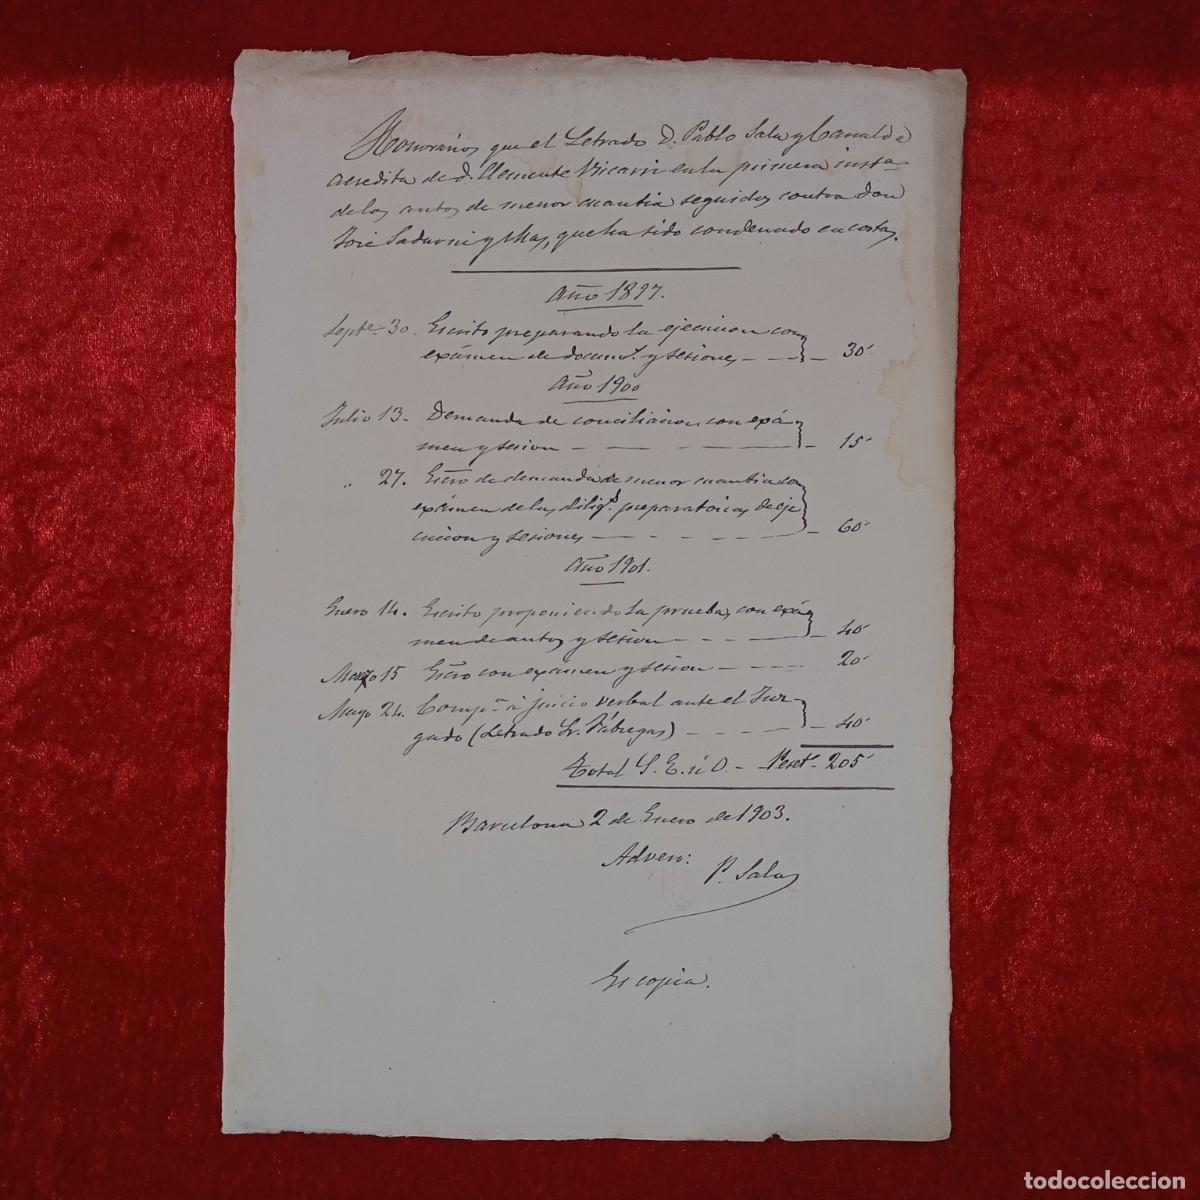 Honorarios que el Letrado D. Pablo Sala y Canalda
acredita de D. Clemente Vicarri en la primera insta-
de los autos de menor cuantia seguidos contra Don
José Sadurni y Mas, que ha sido condenado en costas.
Año 1897.
Septe. 30. Escrito preparando la ejecucion con
exámen de docum.s y sesiones - - - 30'
Año 1900
Julio 13. Demanda de conciliacion con exá-
men y sesion - - - - 15'
" 27. Escro de demanda de menor cuantia con
exámen de las dilig.s preparatorias de eje
cucion y sesiones - - - - 60'
Año 1901.
Enero 14. Escrito proponiendo la prueba, con exá-
men de autos y sesion - - - - 40'
Marzo 15 Escro con exámen y sesion - - - - 20'
Mayo 24. Comp.a á juicio verbal ante el Juz-
gado (Letrado Sr. Fábregas) - - - - 40'
Total S. E. ú O. - Peset.s 205'
Barcelona 2 de Enero de 1903.
P. Sala
Es copia.
todocoleccion